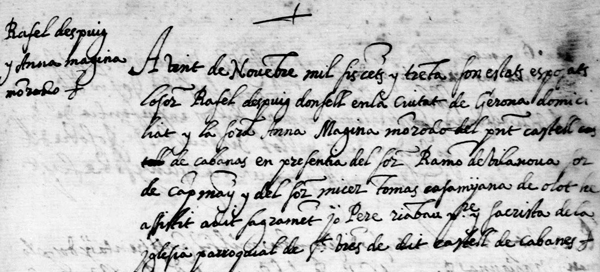 Rafel despuig
y Anna magina
morodo
A vint de Novebre mil siscets y treta son estats esposats
losor Rafel despuig donsell en la Ciutat de Gerona domici
liat y la sora Anna Magina morodo del pnt castell
de cabanas en presentia del sor Ramo de vilanova sor
de capmay y del sor micer tomas casamijana de olot he
assistit a dit sagramet jo Pere riabau pre y sacrista de la
iglesia parroquial de St. de dit castell de cabanes